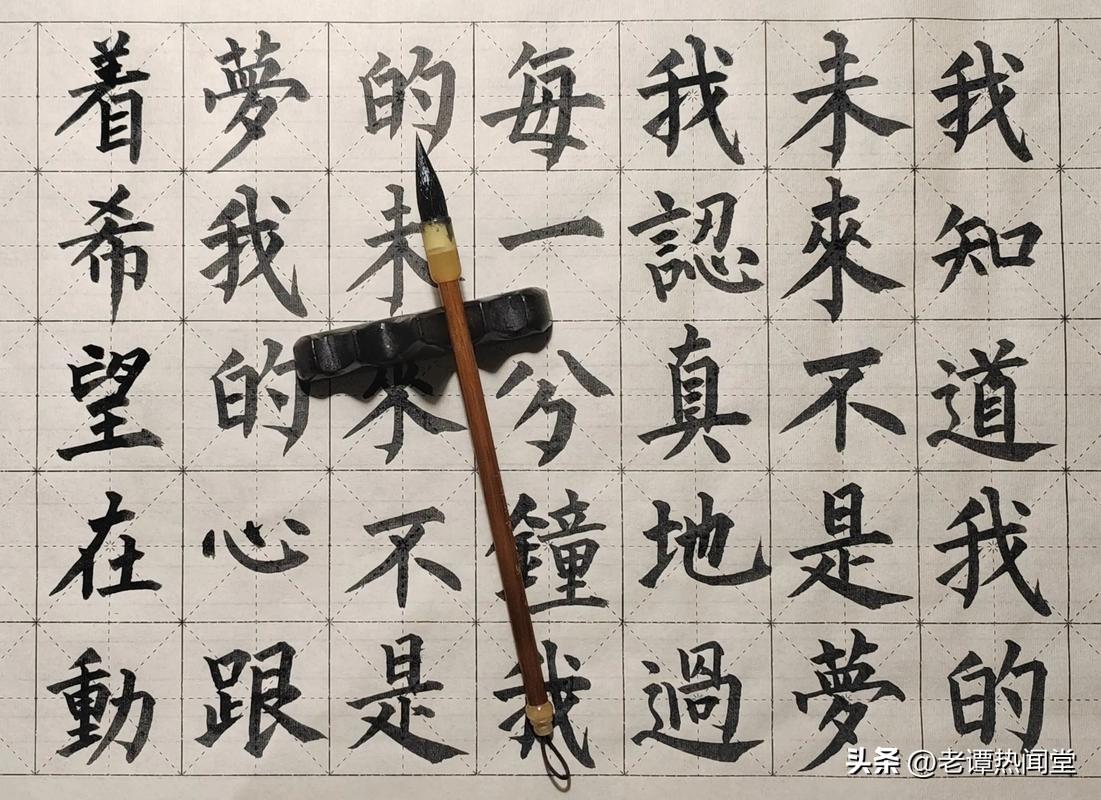 我知道我的
未來不是夢
我認真地過
每一分鐘我
的未來不是
夢我的心跟
着希望在動
头条 @老谭热闻堂